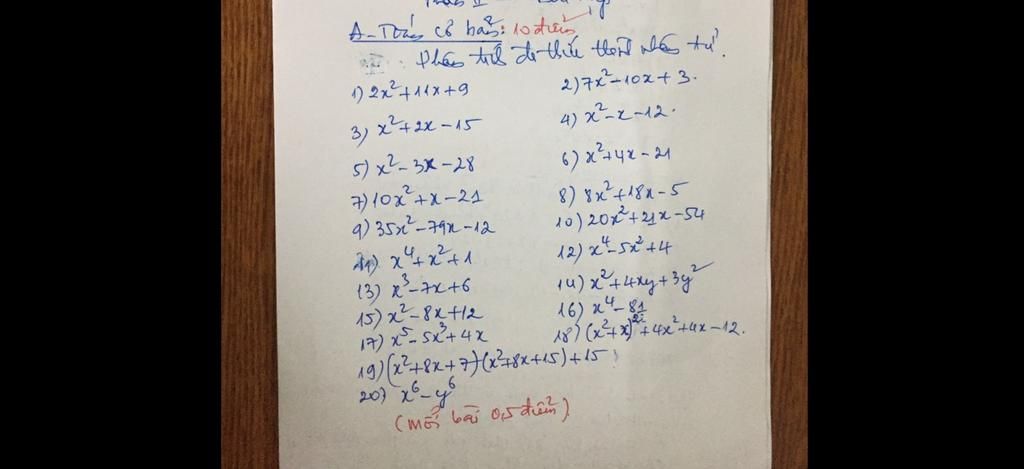 A-Toán cơ bản: 10 điểm
Phân tích đa thức thành nhân tử.
1) 2x²+11x+9 2) 7x²-10x+3.
3) x²+2x-15 4) x²-x-12.
5) x²-3x-28 6) x²+4x-21
7) 10x²+x-21 8) 8x²+18x-5
9) 35x²-79x-12 10) 20x²+21x-54
11) x⁴+x²+1 12) x⁴-5x²+4
13) x³-7x+6 14) x²+4xy+3y²
15) x²-8x+12 16) x⁴-81
17) x⁵-5x³+4x 18) (x²+x)²+4x²+4x-12.
19) (x²+8x+7)(x²+8x+15)+15
20) x⁶-y⁶
(mỗi bài 0,5 điểm)